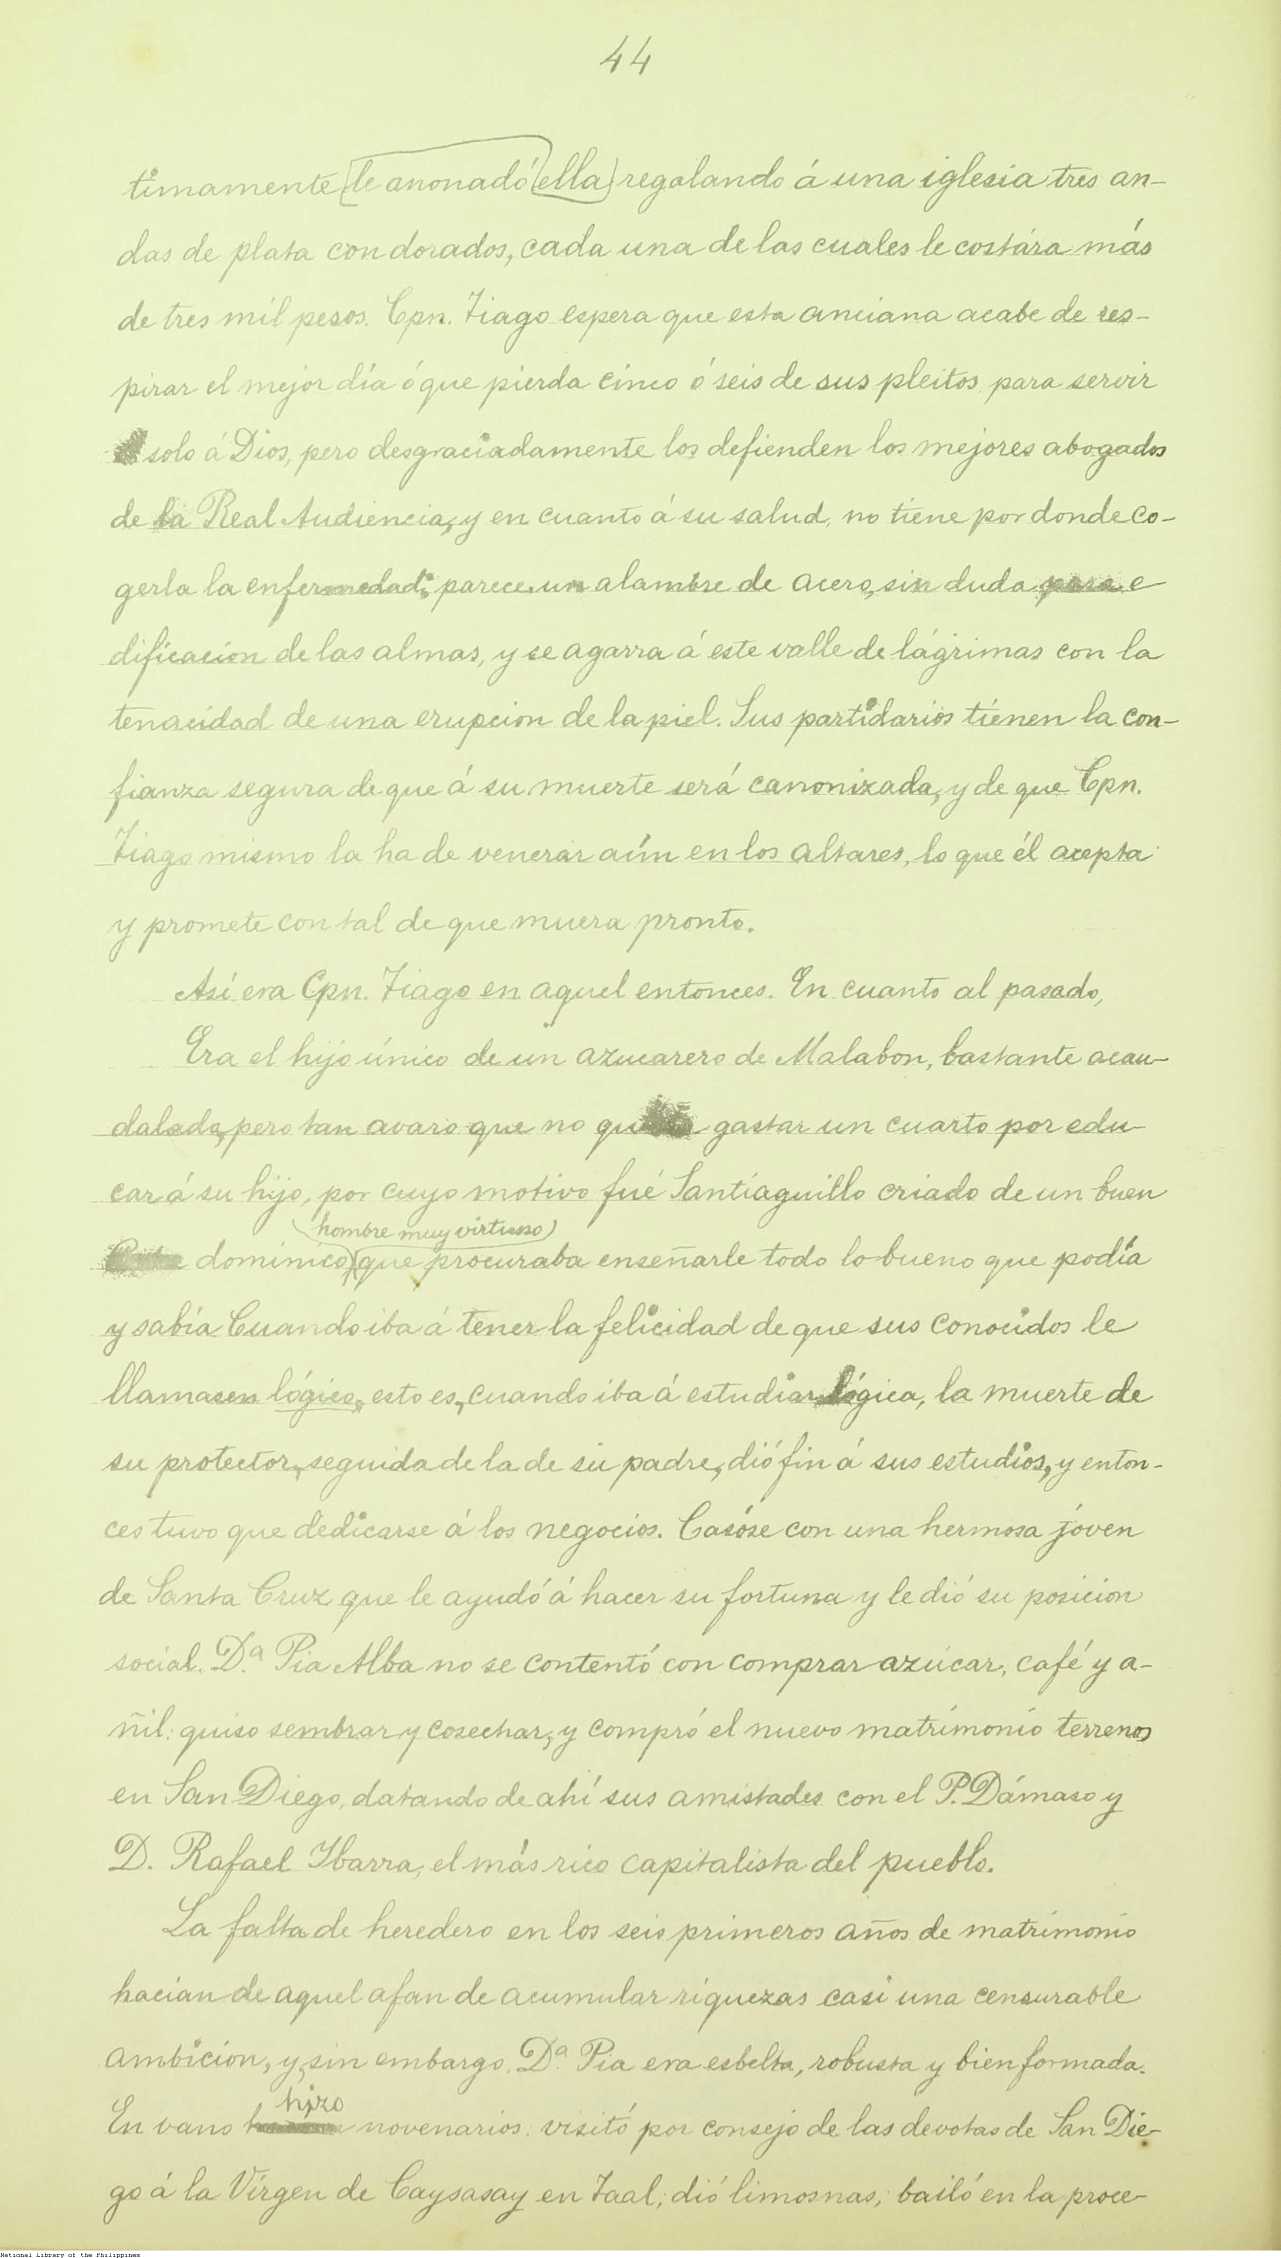 44
timamente le anonadó ella regalando á una iglesia tres an-
das de plata con dorados, cada una de las cuales le costára más
de tres mil pesos. Cpn. Tiago espera que esta anciana acabe de res-
pirar el mejor día ó que pierda cinco ó seis de sus pleitos para servir
solo á Dios, pero desgraciadamente los defienden los mejores abogados
de la Real Audiencia, y en cuanto á su salud, no tiene por donde co-
gerla la enfermedad; parece un alambre de acero, sin duda para e
dificación de las almas, y se agarra á este valle de lágrimas con la
tenacidad de una erupcion de la piel. Sus partidarios tienen la con-
fianza segura de que á su muerte será canonizada, y de que Cpn.
Tiago mismo la ha de venerar aún en los altares, lo que él acepta
y promete con tal de que muera pronto.
Así era Cpn. Tiago en aquel entonces. En cuanto al pasado,
Era el hijo único de un azucarero de Malabon, bastante acau-
dalado, pero tan avaro que no gastar un cuarto por edu-
car á su hijo, por cuyo motivo fué Santiaguillo criado de un buen
hombre muy virtuoso
dominico, que procuraba enseñarle todo lo bueno que podía
y sabía. Cuando iba á tener la felicidad de que sus conocidos le
llamasen lógico, esto es, cuando iba á estudiar lógica, la muerte de
su protector, seguida de la de su padre, dió fin á sus estudios, y enton-
ces tuvo que dedicarse á los negocios. Casóse con una hermosa jóven
de Santa Cruz que le ayudó á hacer su fortuna y le dió su posicion
social. D.ª Pia Alba no se contentó con comprar azúcar, café y a-
ñil: quiso sembrar y cosechar, y compró el nuevo matrimonio terrenos
en San Diego, datando de ahí sus amistades con el P. Dámaso y
D. Rafael Ibarra, el más rico capitalista del pueblo.
La falta de heredero en los seis primeros años de matrimonio
hacían de aquel afan de acumular riquezas casi una censurable
ambicion, y, sin embargo, D.ª Pia era esbelta, robusta y bien formada.
hizo
En vano novenarios, visitó por consejo de las devotas de San Die-
go á la Vírgen de Caysasay en Taal; dió limosnas; bailó en la proce-
National Library of the Philippines